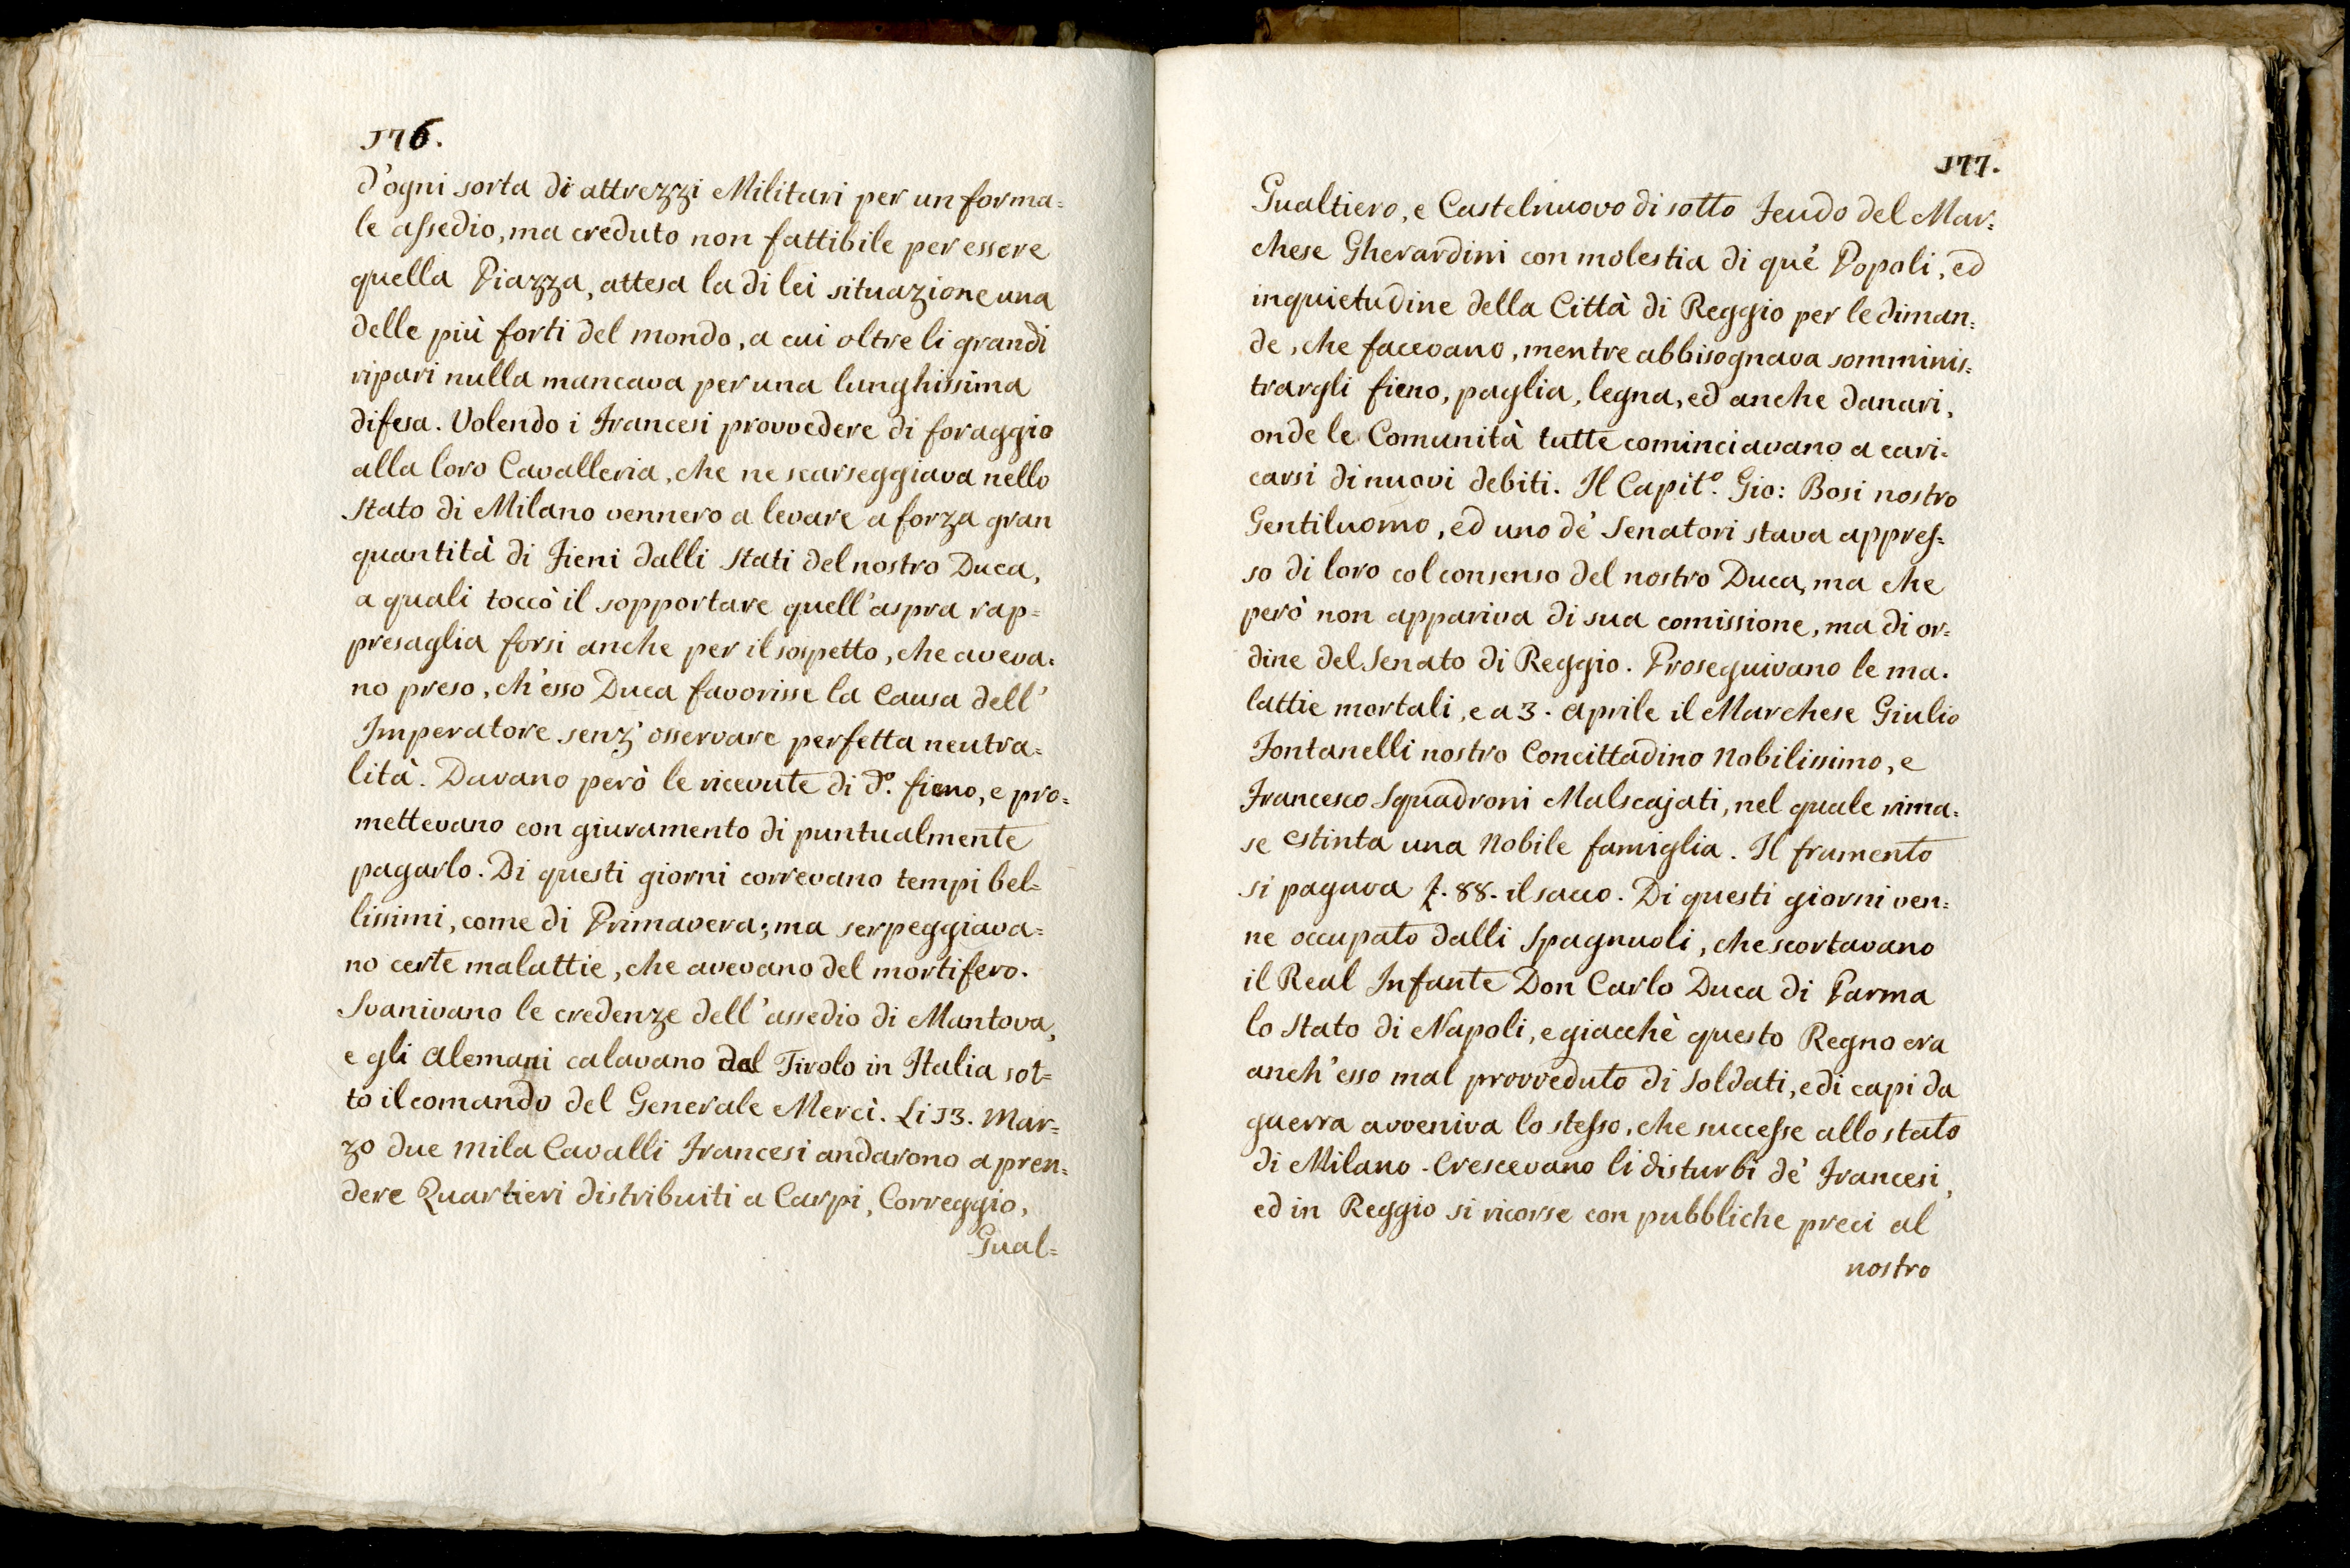 176.
d'ogni sorta di attrezzi Militari per un forma=
le assedio, ma creduto non fattibile per essere
quella Piazza, attesa la di lei situazione una
delle più forti del mondo, a cui oltre li grandi
ripari nulla mancava per una lunghissima
difesa. Volendo i Francesi provvedere di foraggio
alla loro Cavalleria, che ne scarseggiava nello
Stato di Milano vennero a levare a forza gran
quantità di Fieni dalli Stati del nostro Duca,
a quali toccò il sopportare quell'aspra rap=
presaglia forsi anche per il sospetto, che aveva=
no preso, ch'esso Duca favorisse la Causa dell'
Imperatore senz'osservare perfetta neutra=
lità. Davano però le ricevute di d.º fieno, e pro=
mettevano con giuramento di puntualmente
pagarlo. Di questi giorni correvano tempi bel=
lissimi, come di Primavera; ma serpeggiava=
no certe malattie, che avevano del mortifero.
Svanivano le credenze dell'assedio di Mantova,
e gli Alemani calavano dal Tirolo in Italia sot=
to il comando del Generale Mercì. Li 13. Mar=
zo due mila Cavalli Francesi andarono a pren=
dere Quartieri distribuiti a Carpi, Correggio,
Gual=
177.
Gualtiero, e Castelnuovo di sotto Feudo del Mar=
chese Gherardini con molestia di que' Popoli, ed
inquietudine della Città di Reggio per le diman=
de, che facevano, mentre abbisognava somminis=
trargli fieno, paglia, legna, ed anche danari,
onde le Comunità tutte cominciavano a cari=
carsi di nuovi debiti. Il Capit.º Gio: Bosi nostro
Gentiluomo, ed uno de' Senatori stava appres=
so di loro col consenso del nostro Duca, ma che
però non appariva di sua comissione, ma di or=
dine del Senato di Reggio. Proseguivano le ma=
lattie mortali, e a 3. Aprile il Marchese Giulio
Fontanelli nostro Concittadino Nobilissimo, e
Francesco Squadroni Malscajati, nel quale rima=
se estinta una Nobile famiglia. Il frumento
si pagava £. 88. il sacco. Di questi giorni ven=
ne occupato dalli Spagnuoli, che scortavano
il Real Infante Don Carlo Duca di Parma
lo Stato di Napoli, e giacchè questo Regno era
anch'esso mal provveduto di Soldati, e di capi da
guerra avveniva lo stesso, che successe allo stato
di Milano. Crescevano li disturbi de' Francesi,
ed in Reggio si ricorse con pubbliche preci al
nostro